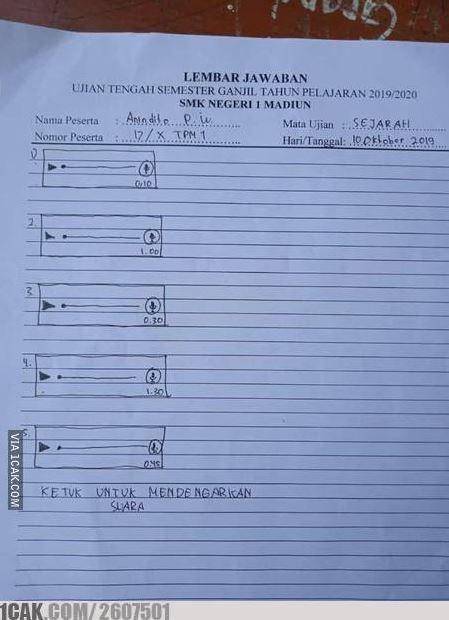 LEMBAR JAWABAN
UJIAN TENGAH SEMESTER GANJIL TAHUN PELAJARAN 2019/2020
SMK NEGERI 1 MADIUN
Nama Peserta : Anindito P. w. Mata Ujian : SEJARAH
Nomor Peserta : 17/X TPM 1 Hari/Tanggal: 10 Oktober 2019
1)
0.10
2.
1.00
3
0.30
4.
1.30
5.
0.45
KETUK UNTUK MENDENGARKAN
SUARA
VIA 1CAK.COM
1CAK.COM/2607501